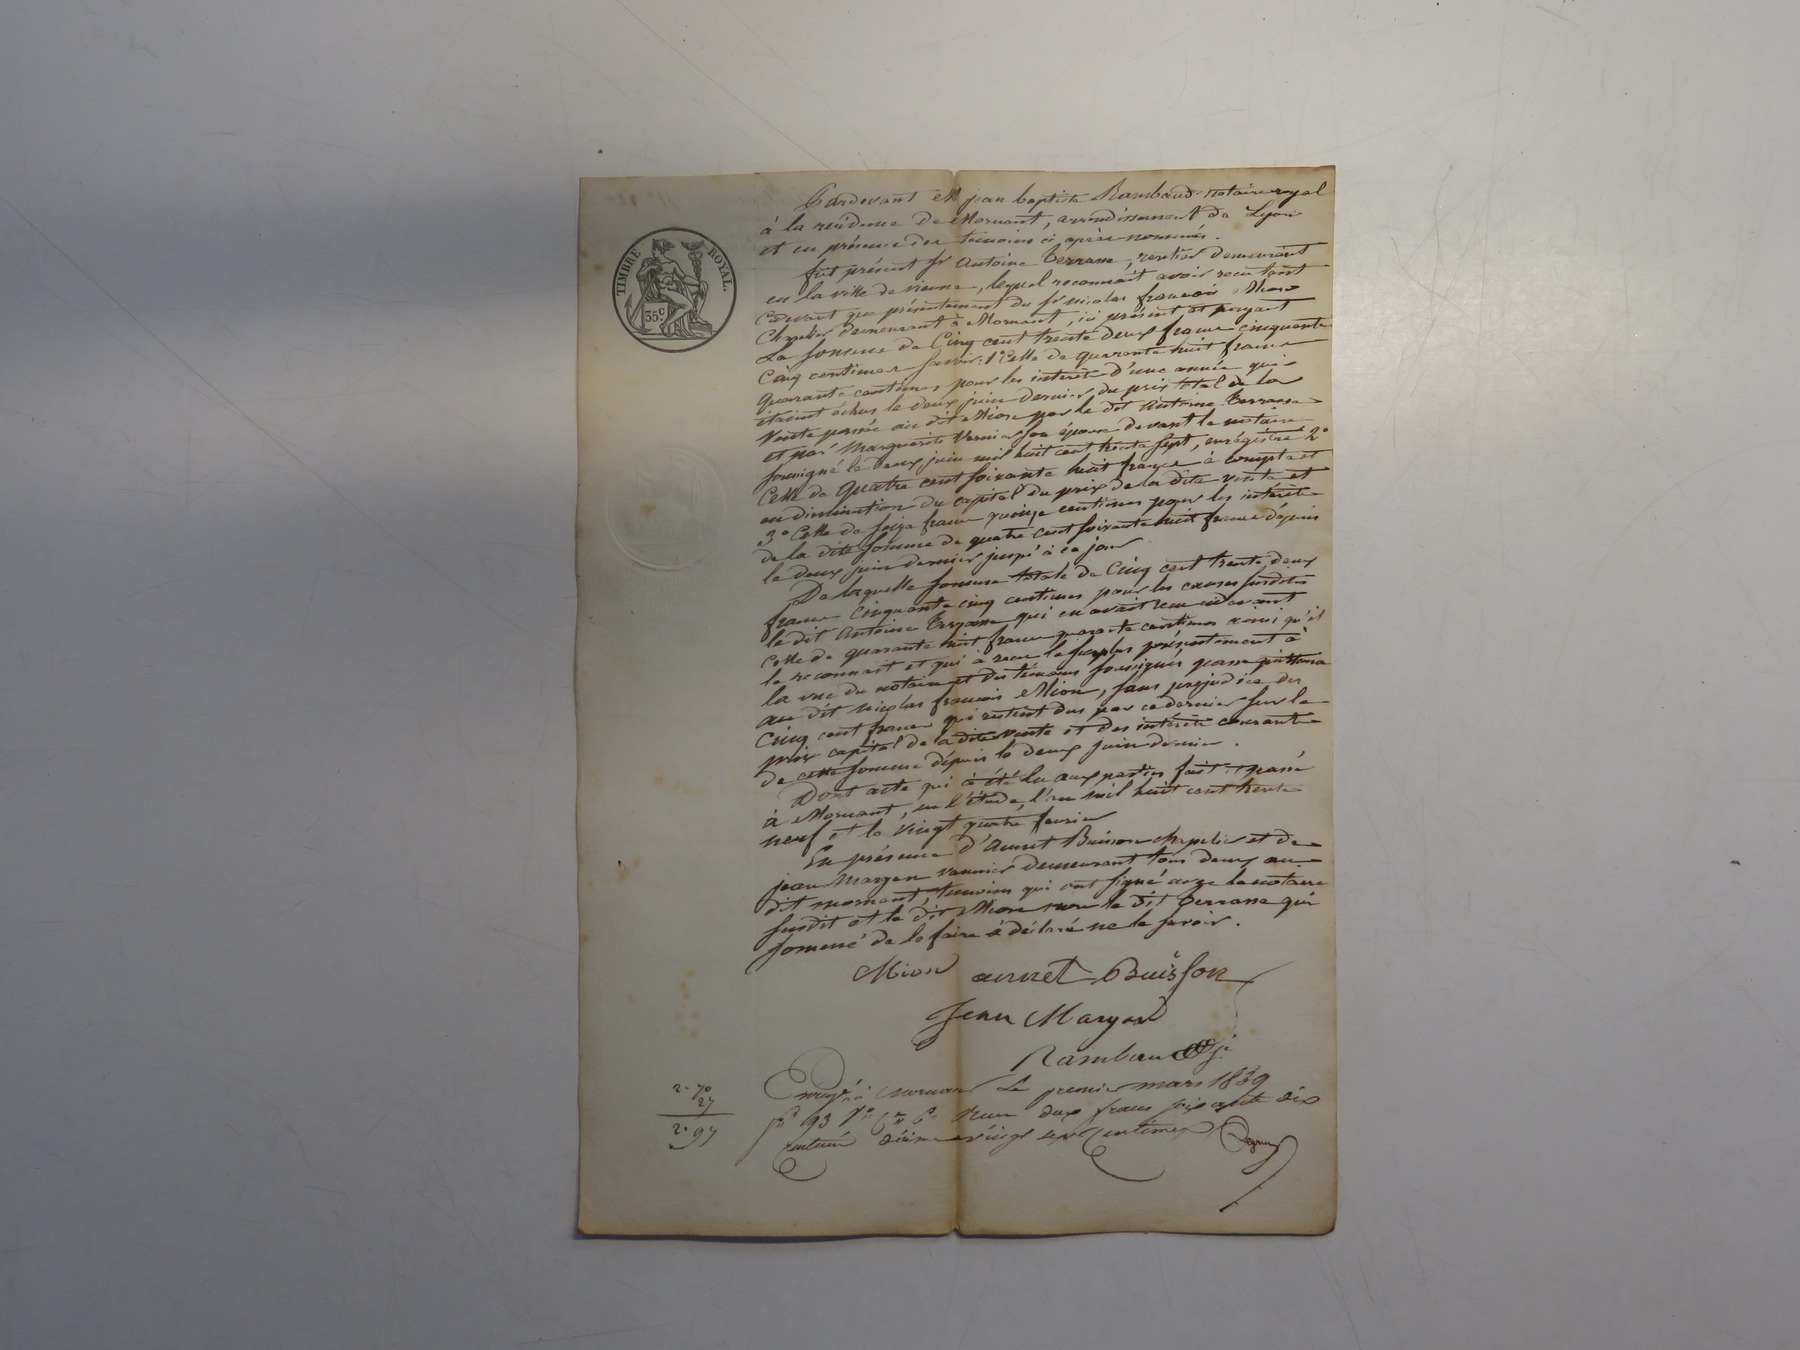 TIMBRE ROYAL.
35c.
Pardevant Me jean baptiste Rambaud notaire royal
à la résidence de Mornant, arrondissement de Lyon
et en présence des temoins ci après nommés.
fut présent Sr Antoine Terrasse, rentier demeurant
en la ville de vienne, lequel reconnait avoir recu tant
cidevant que présentement du Sr nicolas francois Mion
Chapelier demeurant à Mornant, ici présent et payant
La somme de Cinq cent trente deux francs cinquante
Cinq centimes savoir: 1o Celle de quarante huit francs
quarante centimes pour les intérêts d'une année qui
étaient échus le deux juin dernier, du prix total de la
Vente passée au dit Mion par le dit Antoine Terrasse
et par Marguerite Vernie son épouse devant le notaire
soussigné le deux juin mil huit cent trente sept, enrégistré 2o
Celle de quatre cent soixante huit francs à compte et
en diminution du capital du prix de la dite vente et
3o Celle de seize francs quinze centimes pour les intérêts
de la dite somme de quatre cent soixante huit francs dépuis
le deux juin dernier jusqu'à ce jour
De laquelle somme totale de Cinq cent trente deux
francs Cinquante cinq centimes pour les causes susdites
le dit Antoine Terrasse qui en avait recu cidevant
Celle de quarante huit francs quarante centimes ainsi qu'il
le reconnait et qui à recu le surplus présentement à
la vue du notaire et des témoins soussignés passe quittance
au dit nicolas francois Mion, sans prejudice des
Cinq cent francs qui restent dus par ce dernier sur le
prix capital de la dite vente et des intérêts courants
de cette somme dépuis le deux juin dernier.
Dont acte qui à été lu aux parties fait et passé
à Mornant, en l'étude, l'an mil huit cent trente
neuf et le vingt quatre fevrier
En présence d'Aunet Buisson chapelier et de
jean Margan vannier demeurant tous deux au
dit mornant, temoins qui ont signé avec le notaire
susdit et le dit Mion non le dit Terrasse qui
sommé de le faire à déclaré ne le savoir.
Mion aunet Buisson
Jean Margan
Rambaud
Enregé à mornant Le premier mars 1839
fo 93 Vo Ce 6. Recu deux francs soixante dix
centimes décime vingt sept Centimes
2. 70
27
2. 97